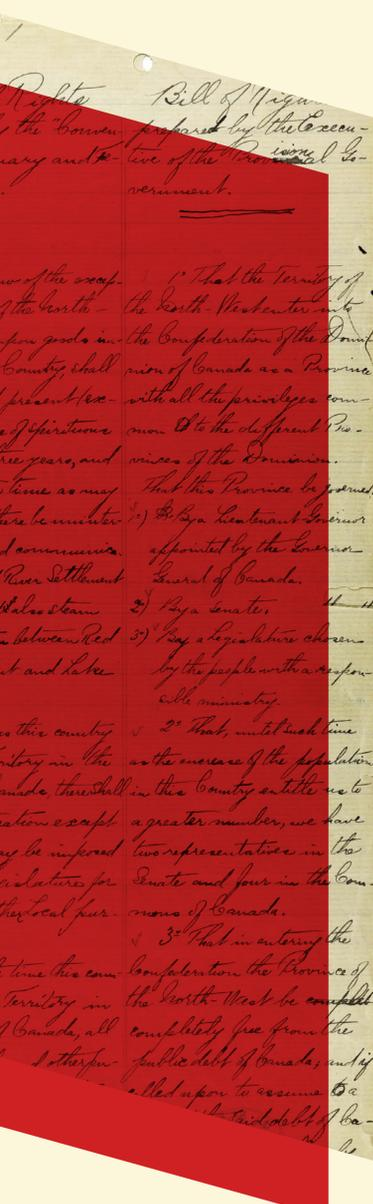 1
Rights
y the "Conven-
uary and Re-
ws of the excep-
of the North-
upon goods im-
Country, shall
present (ex-
s of Spirituous
three years, and
time as may
there be uninter-
d communica-
River Settlement
also steam
n between Red
nt and Lake
s this country
ritory in the
Canada, there Shall
ation except
ay be imposed
gislature for
ther Local pur-
t time this coun-
Territory in
of Canada, all
d other pu-
Bill of Rights
prepared by the Execu-
tive of the Provisional Go-
vernment.
1° That the Territory of
the North-West enter into
the Confederation of the Domi-
nion of Canada as a Province
with all the privileges com-
mon to the different Pro-
vinces of the Dominion.
That this Province be governed
1°) By a Lieutenant-Governor
appointed by the Governor
General of Canada.
2°) By a Senate.
3°) By a Legislature chosen
by the people with a respon-
sible ministry.
2° That, until such time
as the increase of the population
in this Country entitle us to
a greater number, we have
two representatives in the
Senate and four in the Com-
mons of Canada.
3° That in entering the
Confederation the Province of
the North-West be
completely free from the
public debt of Canada; and if
called upon to assume a
said debt of Ca-
be